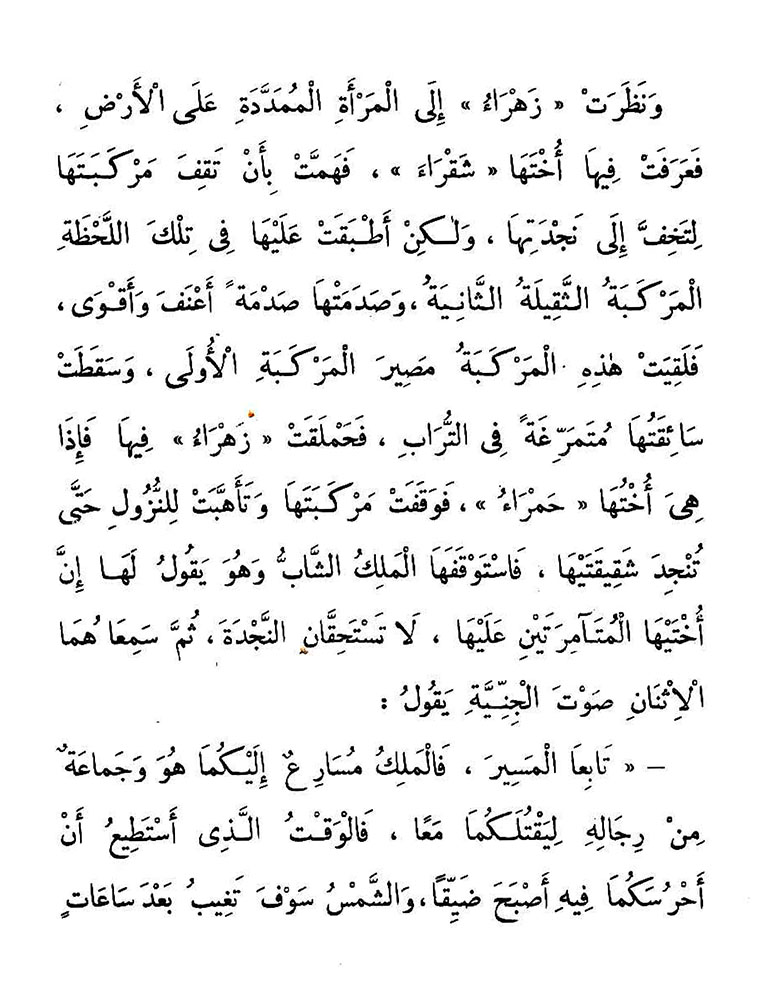 وَنَظَرَتْ « زَهْرَاءُ » إِلَى الْمَرْأَةِ الْمُمَدَّدَةِ عَلَى الْأَرْضِ ،
فَعَرَفَتْ فِيهَا أُخْتَهَا « شَقْرَاءَ » ، فَهَمَّتْ بِأَنْ تَقِفَ مَرْكَبَتَهَا
لِتَخِفَّ إِلَى نَجْدَتِهَا ، وَلٰكِنْ أَطْبَقَتْ عَلَيْهَا فِى تِلْكَ اللَّحْظَةِ
الْمَرْكَبَةُ الثَّقِيلَةُ الثَّانِيَةُ ، وَصَدَمَتْهَا صَدْمَةً أَعْنَفَ وَأَقْوَى ،
فَلَقِيَتْ هٰذِهِ الْمَرْكَبَةُ مَصِيرَ الْمَرْكَبَةِ الْأُولَى ، وَسَقَطَتْ
سَائِقَتُهَا مُتَمَرِّغَةً فِى التُّرَابِ ، فَحَمْلَقَتْ « زَهْرَاءُ » فِيهَا فَإِذَا
هِىَ أُخْتُهَا « حَمْرَاءُ » ، فَوَقَفَتْ مَرْكَبَتَهَا وَتَأَهَّبَتْ لِلنُّزُولِ حَتَّى
تُنْجِدَ شَقِيقَتَيْهَا ، فَاسْتَوْقَفَهَا الْمَلِكُ الشَّابُّ وَهُوَ يَقُولُ لَهَا إِنَّ
أُخْتَيْهَا الْمُتَآمِرَتَيْنِ عَلَيْهَا ، لَا تَسْتَحِقَّانِ النَّجْدَةَ ، ثُمَّ سَمِعَا هُمَا
الْاِثْنَانِ صَوْتَ الْجِنِّيَّةِ يَقُولُ :
– « تَابِعَا الْمَسِيرَ ، فَالْمَلِكُ مُسَارِعٌ إِلَيْكُمَا هُوَ وَجَمَاعَةٌ
مِنْ رِجَالِهِ لِيَقْتُلَكُمَا مَعًا ، فَالْوَقْتُ الَّذِى أَسْتَطِيعُ أَنْ
أَحْرُسَكُمَا فِيهِ أَصْبَحَ ضَيِّقًا ، وَالشَّمْسُ سَوْفَ تَغِيبُ بَعْدَ سَاعَاتٍ